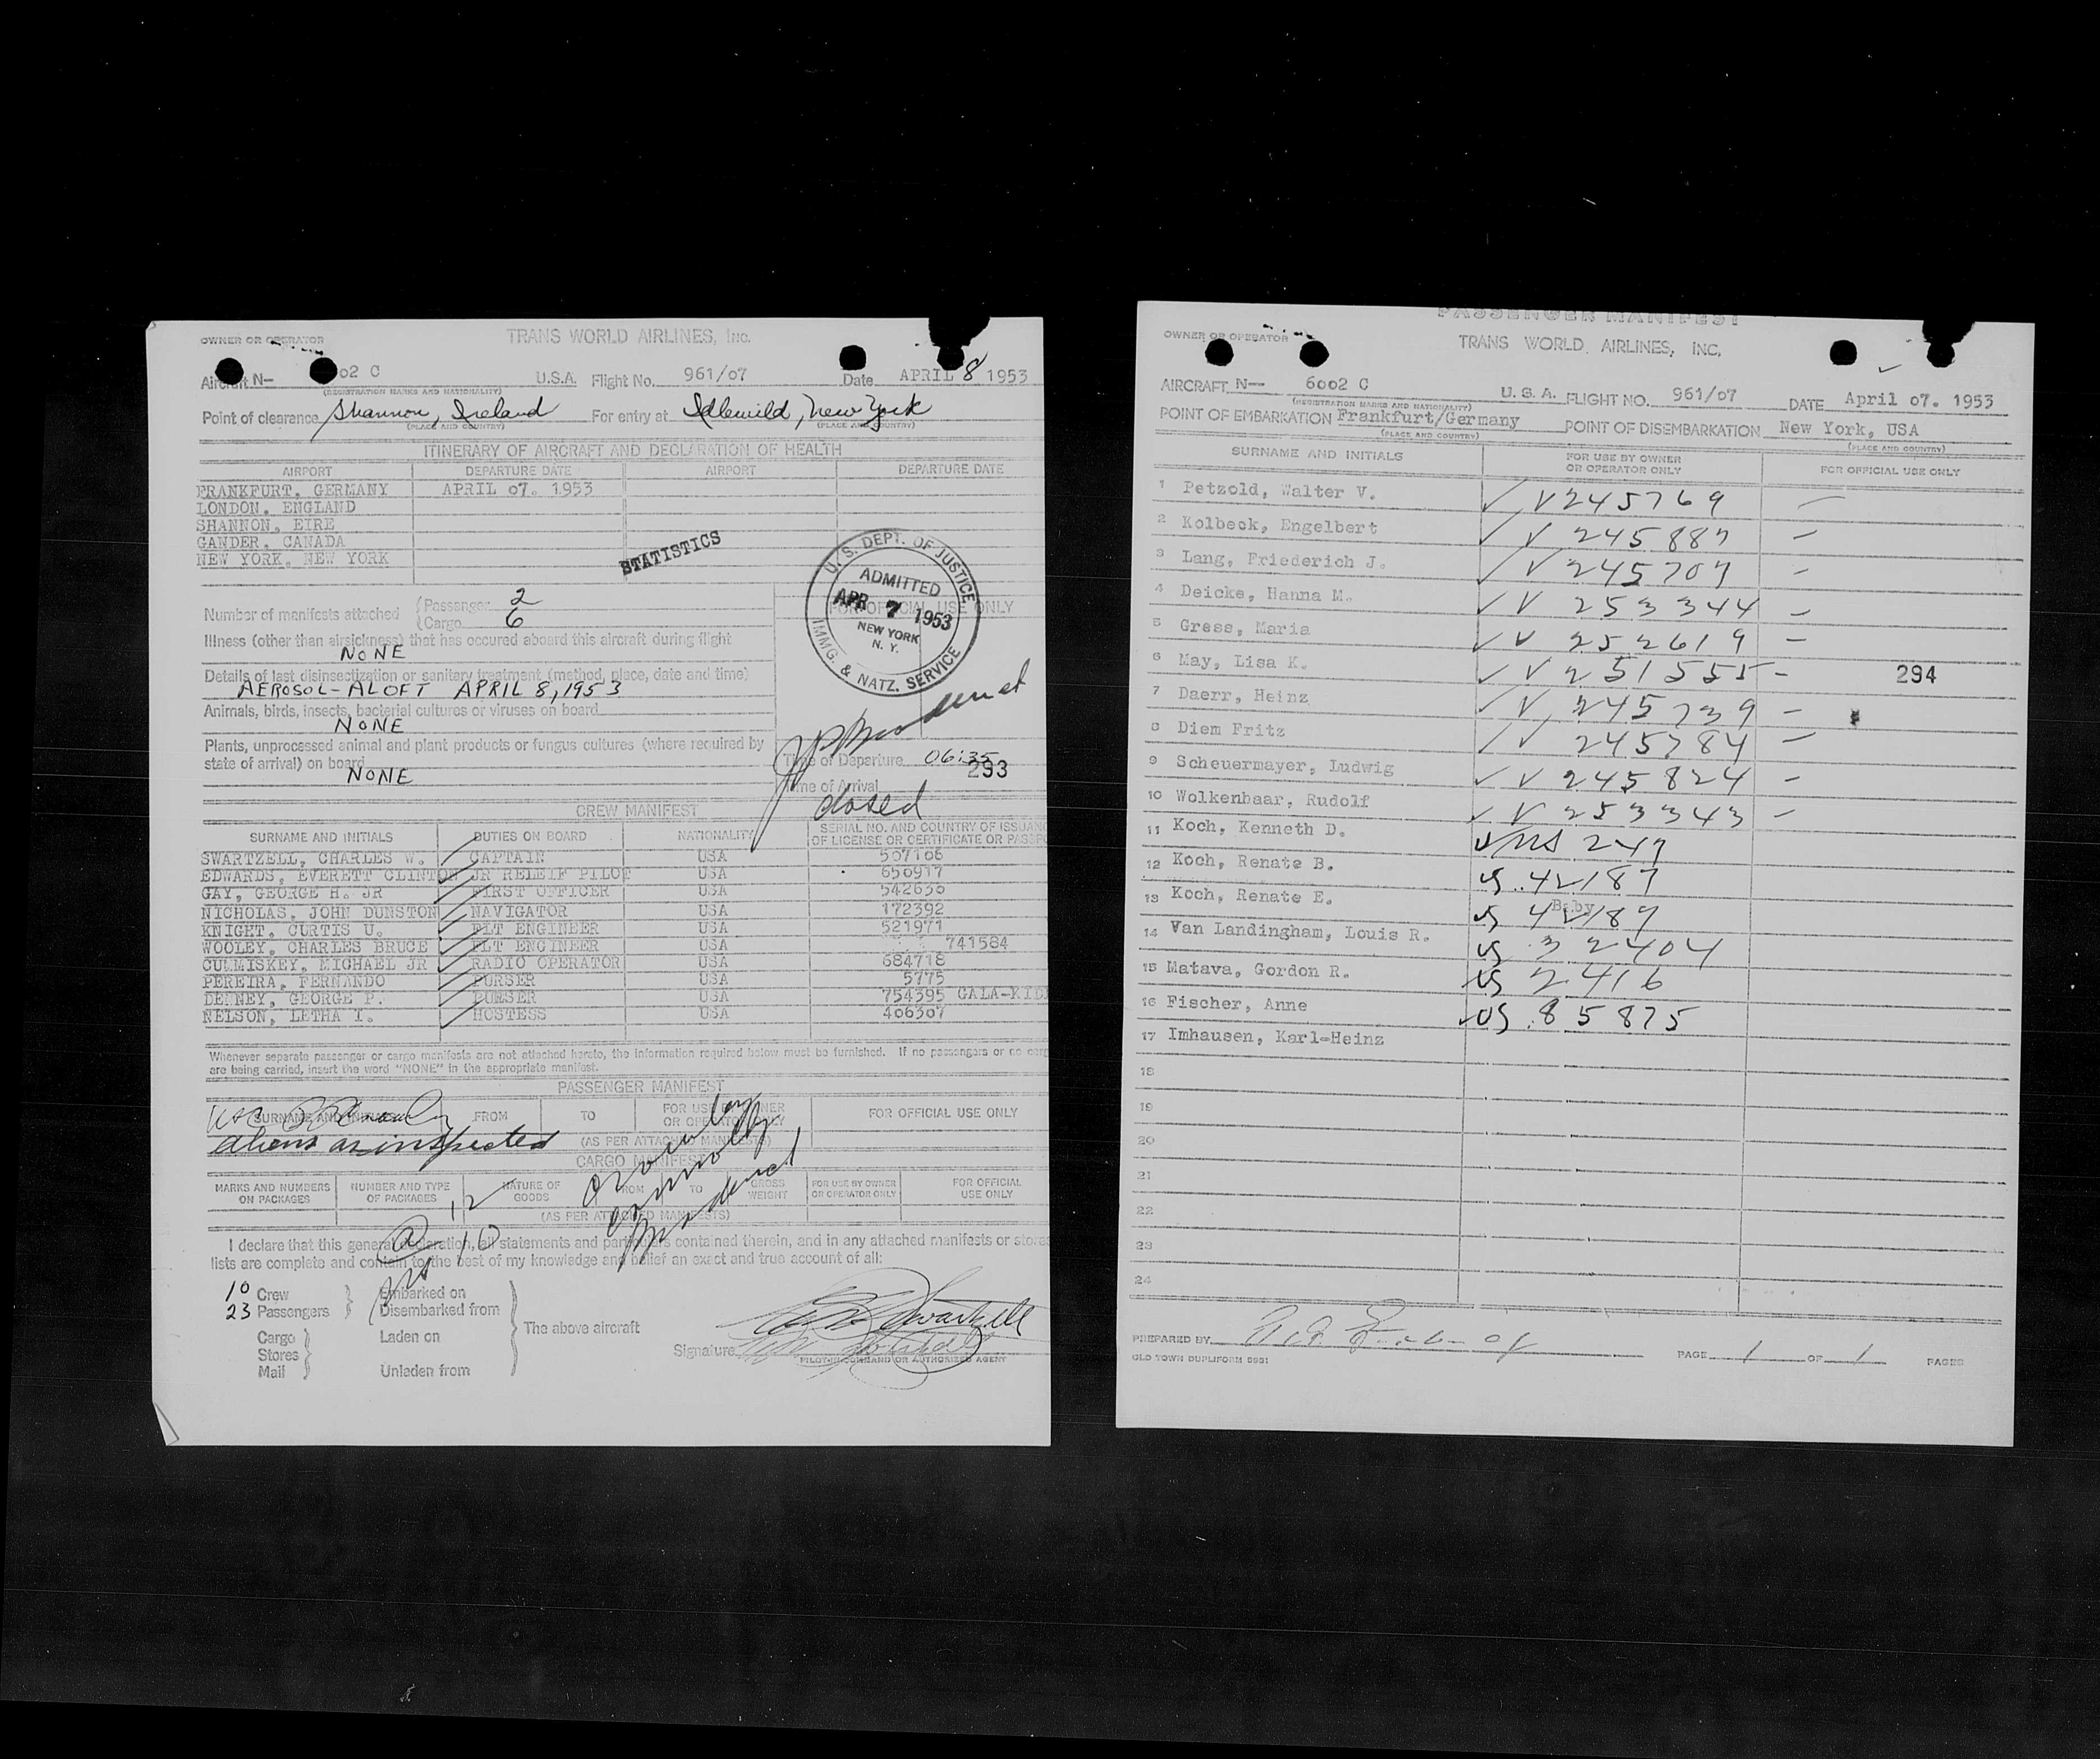 OWNER OR OPERATOR
TRANS WORLD AIRLINES, Inc.
Aircraft N- 02 C U.S.A. Flight No. 961/07 Date APRIL 8 1953
(REGISTRATION MARKS AND NATIONALITY)
Point of clearance Shannon, Ireland For entry at Idlewild, New York
(PLACE AND COUNTRY) (PLACE AND COUNTRY)
ITINERARY OF AIRCRAFT AND DECLARATION OF HEALTH
AIRPORT DEPARTURE DATE AIRPORT DEPARTURE DATE
FRANKFURT, GERMANY APRIL 07. 1953
LONDON, ENGLAND
SHANNON, EIRE
GANDER, CANADA
NEW YORK, NEW YORK
STATISTICS
U.S. DEPT. OF JUSTICE
ADMITTED
APR 7 1953
NEW YORK
N. Y.
IMMG. & NATZ. SERVICE
FOR OFFICIAL USE ONLY
Number of manifests attached (Passenger 2
(Cargo 6
Illness (other than airsickness) that has occured aboard this aircraft during flight
NONE
Details of last disinsectization or sanitary treatment (method, place, date and time)
AEROSOL-ALOFT APRIL 8, 1953
Animals, birds, insects, bacterial cultures or viruses on board
NONE
Plants, unprocessed animal and plant products or fungus cultures (where required by
state of arrival) on board
NONE
Time of Departure 06:35
293
Time of Arrival
closed
CREW MANIFEST
SURNAME AND INITIALS DUTIES ON BOARD NATIONALITY SERIAL NO. AND COUNTRY OF ISSUAN
OF LICENSE OR CERTIFICATE OR PASSP
SWARTZELL, CHARLES W. CAPTAIN USA 507106
EDWARDS, EVERETT CLINTON JR RELEIF PILOT USA 650917
GAY, GEORGE H. JR FIRST OFFICER USA 542636
NICHOLAS, JOHN DUNSTON NAVIGATOR USA 172392
KNIGHT, CURTIS U. FLT ENGINEER USA 521971
WOOLEY, CHARLES BRUCE FLT ENGINEER USA 741584
CUMMISKEY, MICHAEL JR RADIO OPERATOR USA 684718
PEREIRA, FERNANDO PURSER USA 5775
DENNEY, GEORGE P. PURSER USA 754395
NELSON, LETHA I. HOSTESS USA 406307
Whenever separate passenger or cargo manifests are not attached hereto, the information required below must be furnished. If no passengers or no
are being carried, insert the word "NONE" in the appropriate manifest.
PASSENGER MANIFEST
SURNAME AND INITIALS FROM TO FOR USE BY OWNER
OR OPERATOR ONLY FOR OFFICIAL USE ONLY
aliens as inspected
(AS PER ATTACHED MANIFESTS)
CARGO MANIFEST
MARKS AND NUMBERS
ON PACKAGES NUMBER AND TYPE
OF PACKAGES NATURE OF
GOODS FROM TO GROSS
WEIGHT FOR USE BY OWNER
OR OPERATOR ONLY FOR OFFICIAL
USE ONLY
12
(AS PER ATTACHED MANIFESTS)
10
I declare that this general declaration, all statements and particulars contained therein, and in any attached manifests or stores
lists are complete and contain to the best of my knowledge and belief an exact and true account of all:
10 Crew Embarked on
23 Passengers Disembarked from
Cargo Laden on The above aircraft
Stores
Mail Unladen from
Signature
PILOT-IN-COMMAND OR AUTHORIZED AGENT
PASSENGER MANIFEST
OWNER OR OPERATOR
TRANS WORLD AIRLINES, INC.
AIRCRAFT N- 6002 C U. S. A. FLIGHT NO. 961/07 DATE April 07. 1953
(REGISTRATION MARKS AND NATIONALITY)
POINT OF EMBARKATION Frankfurt/Germany POINT OF DISEMBARKATION New York, USA
(PLACE AND COUNTRY) (PLACE AND COUNTRY)
SURNAME AND INITIALS FOR USE BY OWNER
OR OPERATOR ONLY FOR OFFICIAL USE ONLY
1 Petzold, Walter V. ✓ V 245769 -
2 Kolbeck, Engelbert ✓ V 245887 -
3 Lang, Friederich J. ✓ V 245707 -
4 Deicke, Hanna M. ✓ V 253344 -
5 Gress, Maria ✓ V 252619 -
6 May, Lisa K. ✓ V 251555 - 294
7 Daerr, Heinz ✓ V 245739 -
8 Diem Fritz ✓ V 245784 -
9 Scheuermayer, Ludwig ✓ V 245824 -
10 Wolkenhaar, Rudolf ✓ V 253343 -
11 Koch, Kenneth D. 247
12 Koch, Renate B. US 42187
13 Koch, Renate E. Baby
US 42189
14 Van Landingham, Louis R. US 32404
15 Matava, Gordon R. US 2416
16 Fischer, Anne US 85875
17 Imhausen, Karl-Heinz
18
19
20
21
22
23
24
PREPARED BY
OLD TOWN DUPLIFORM 5931
PAGE 1 OF 1 PAGES